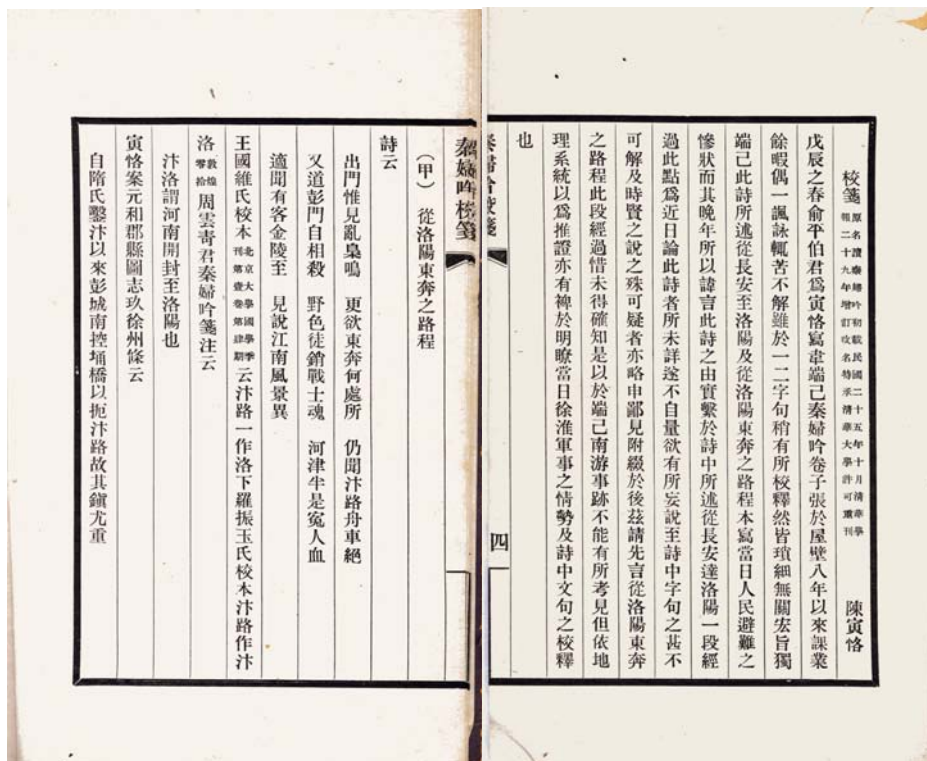 校箋 原名讀秦婦吟初載民國二十五年十月清華學
報二十九年增訂改名特承清華大學許可重刊 陳寅恪
戊辰之春俞平伯君爲寅恪寫韋端己秦婦吟卷子張於屋壁八年以來課業
餘暇偶一諷詠輒苦不解雖於一二字句稍有所校釋然皆瑣細無關宏旨獨
端己此詩所述從長安至洛陽及從洛陽東奔之路程本寫當日人民避難之
慘狀而其晚年所以諱言此詩之由實繫於詩中所述從長安達洛陽一段經
過此點爲近日論此詩者所未詳遂不自量欲有所妄說至詩中字句之甚不
可解及時賢之說之殊可疑者亦略申鄙見附綴於後茲請先言從洛陽東奔
之路程此段經過惜未得確知是以於端己南游事跡不能有所考見但依地
理系統以爲推證亦有裨於明瞭當日徐淮軍事之情勢及詩中文句之校釋
也
秦婦吟校箋
四
秦婦吟校箋
（甲） 從洛陽東奔之路程
詩云
出門惟見亂梟鳴 更欲東奔何處所 仍聞汴路舟車絕
又道彭門自相殺 野色徒銷戰士魂 河津半是冤人血
適聞有客金陵至 見說江南風景異
王國維氏校本 北京大學國學季
刊第壹卷第肆期 云汴路一作洛下羅振玉氏校本汴路作汴
洛 敦煌
零拾 周雲青君秦婦吟箋注云
汴洛謂河南開封至洛陽也
寅恪案元和郡縣圖志玖徐州條云
自隋氏鑿汴以來彭城南控埇橋以扼汴路故其鎮尤重